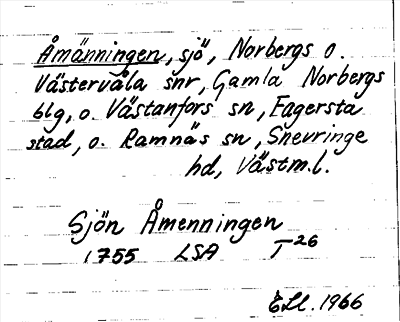 Åmänningen, sjö, Norbergs o.
Västervåla snr, Gamla Norbergs
blg, o. Västanfors sn, Fagersta
stad, o. Ramnäs sn, Snevringe
hd, Västm.l.
Sjön Åmenningen
1755 LSA T26
E.Ll. 1966